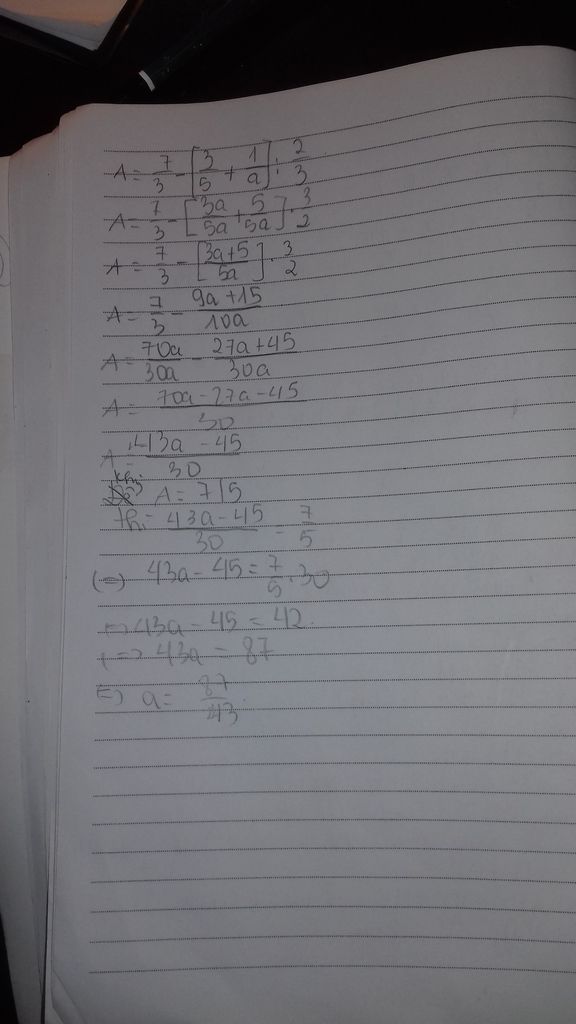 A = 7/3 - [3/5 + 1/a] : 2/3
A = 7/3 - [3a/5a + 5/5a] . 3/2
A = 7/3 - [3a+5/5a] . 3/2
A = 7/3 - 9a+15/10a
A = 70a/30a - 27a+45/30a
A = 70a-27a-45/30
A = 43a-45/30
khi A = 7/5
thì 43a-45/30 = 7/5
(=) 43a - 45 = 7/5 . 30
<=> 43a - 45 = 42
<=> 43a = 87
<=> a = 87/43